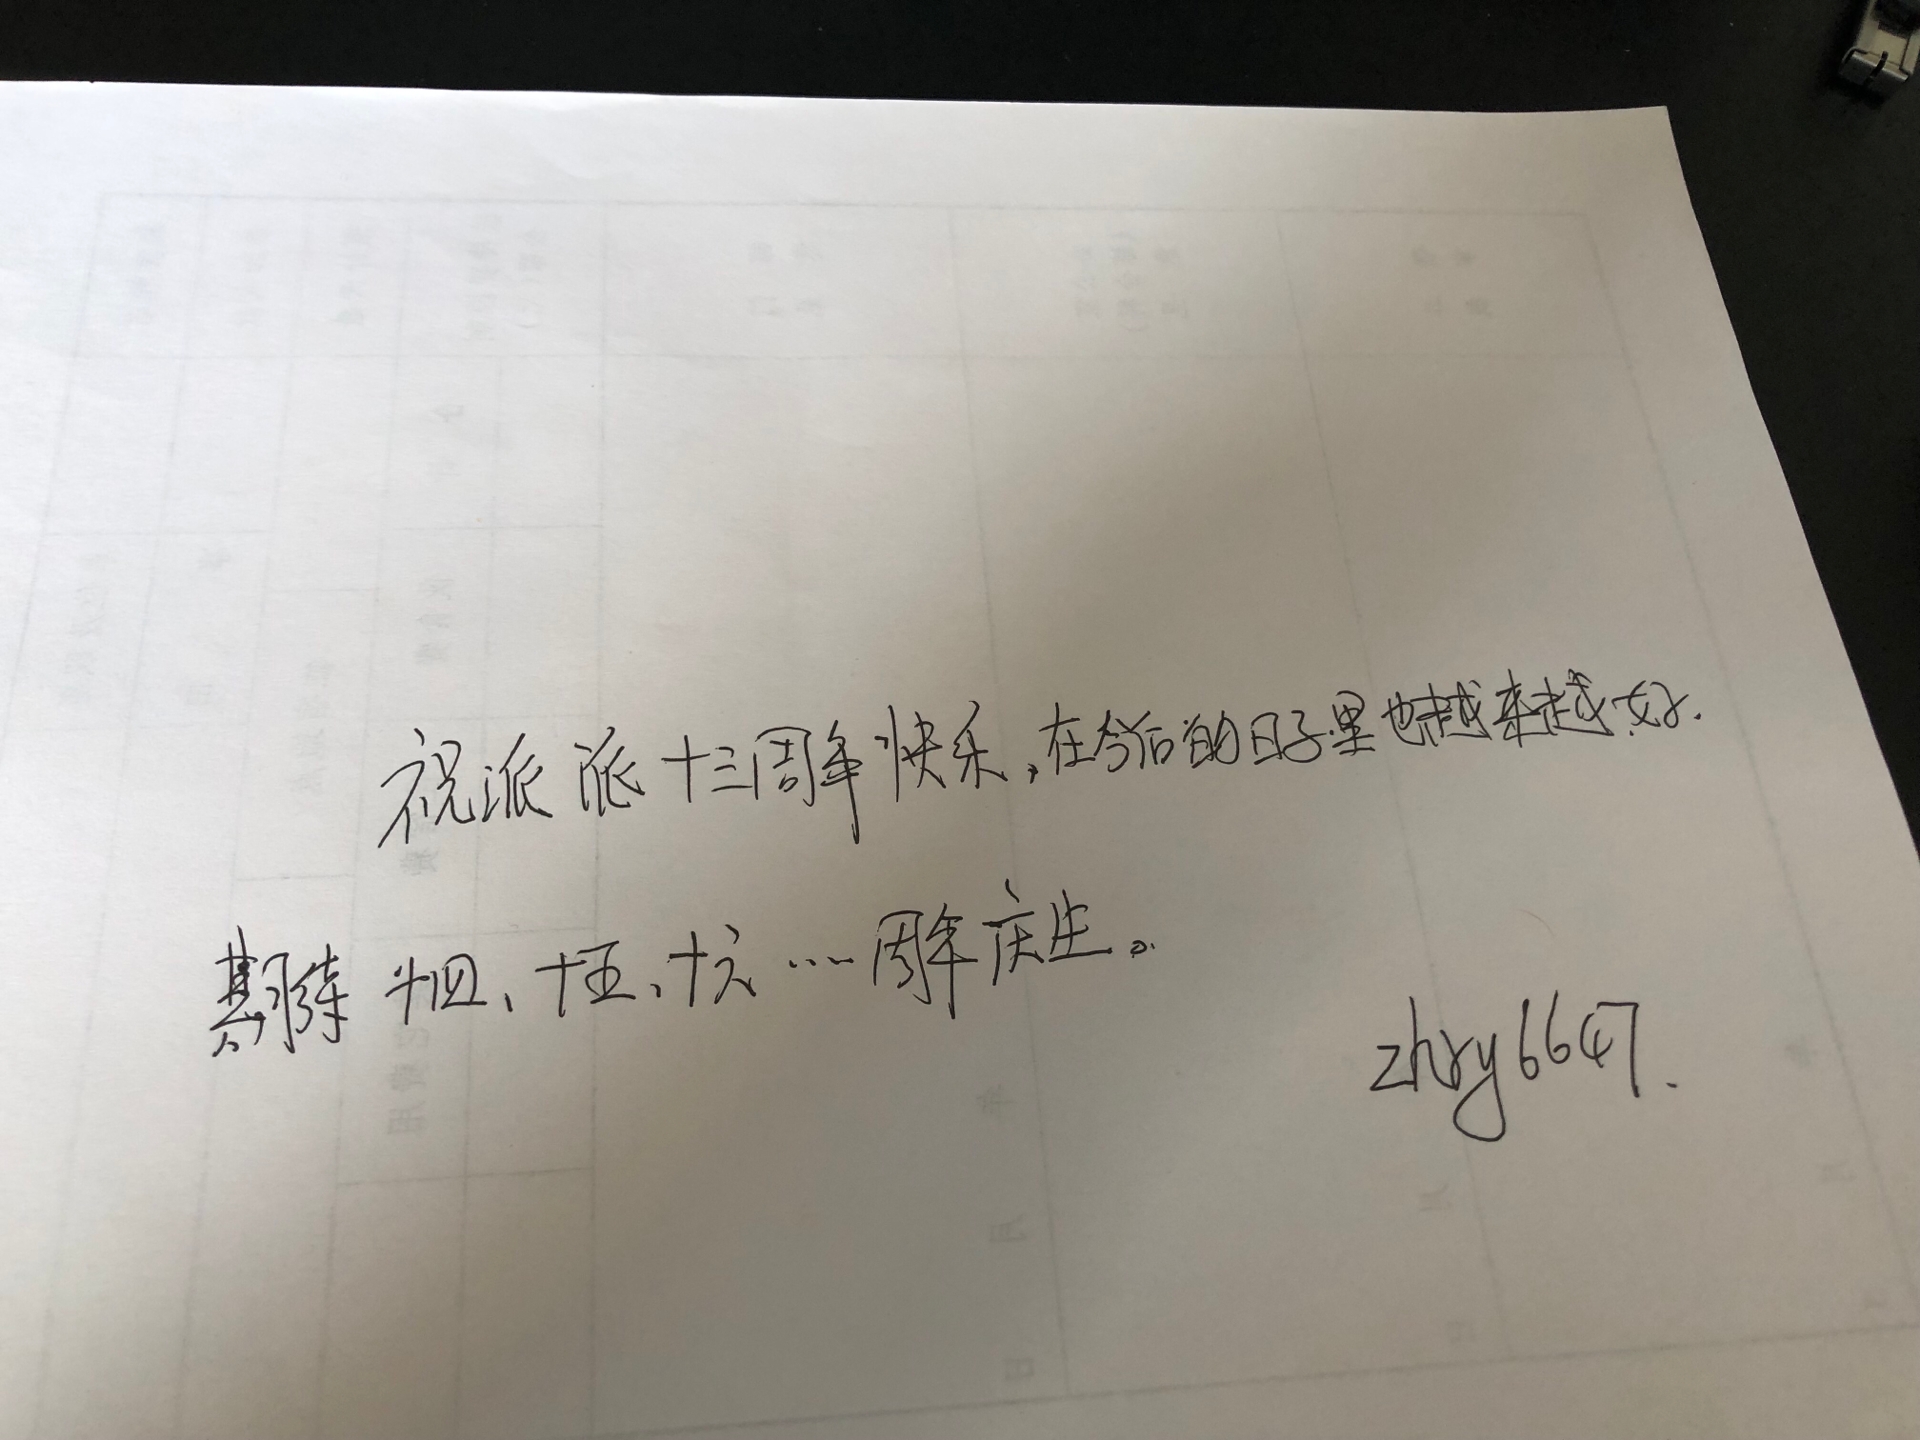 祝派派十三周年快乐,在今后的日子里也越来越好.
期待十四、十五、十六……周年庆生。
zhry6647.